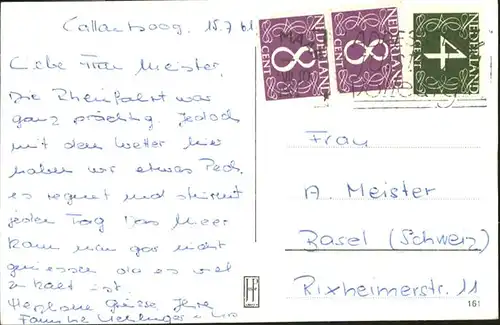 Callantsoog, 15.7.61
Liebe Frau Meister,
Die Rheinfahrt war
ganz prächtig. Jedoch
mit dem Wetter hier
haben wir etwas Pech,
es regnet und stürmt
jeden Tag Das Meer
kann man gar nicht
geniessen da es viel
zu kalt ist.
Grüsse Ihre
Familie
NEDERLAND
8
CENT
NEDERLAND
8
CENT
NEDERLAND
4
CENT
Frau
A. Meister
Basel (Schweiz)
Rixheimerstr. 11
161